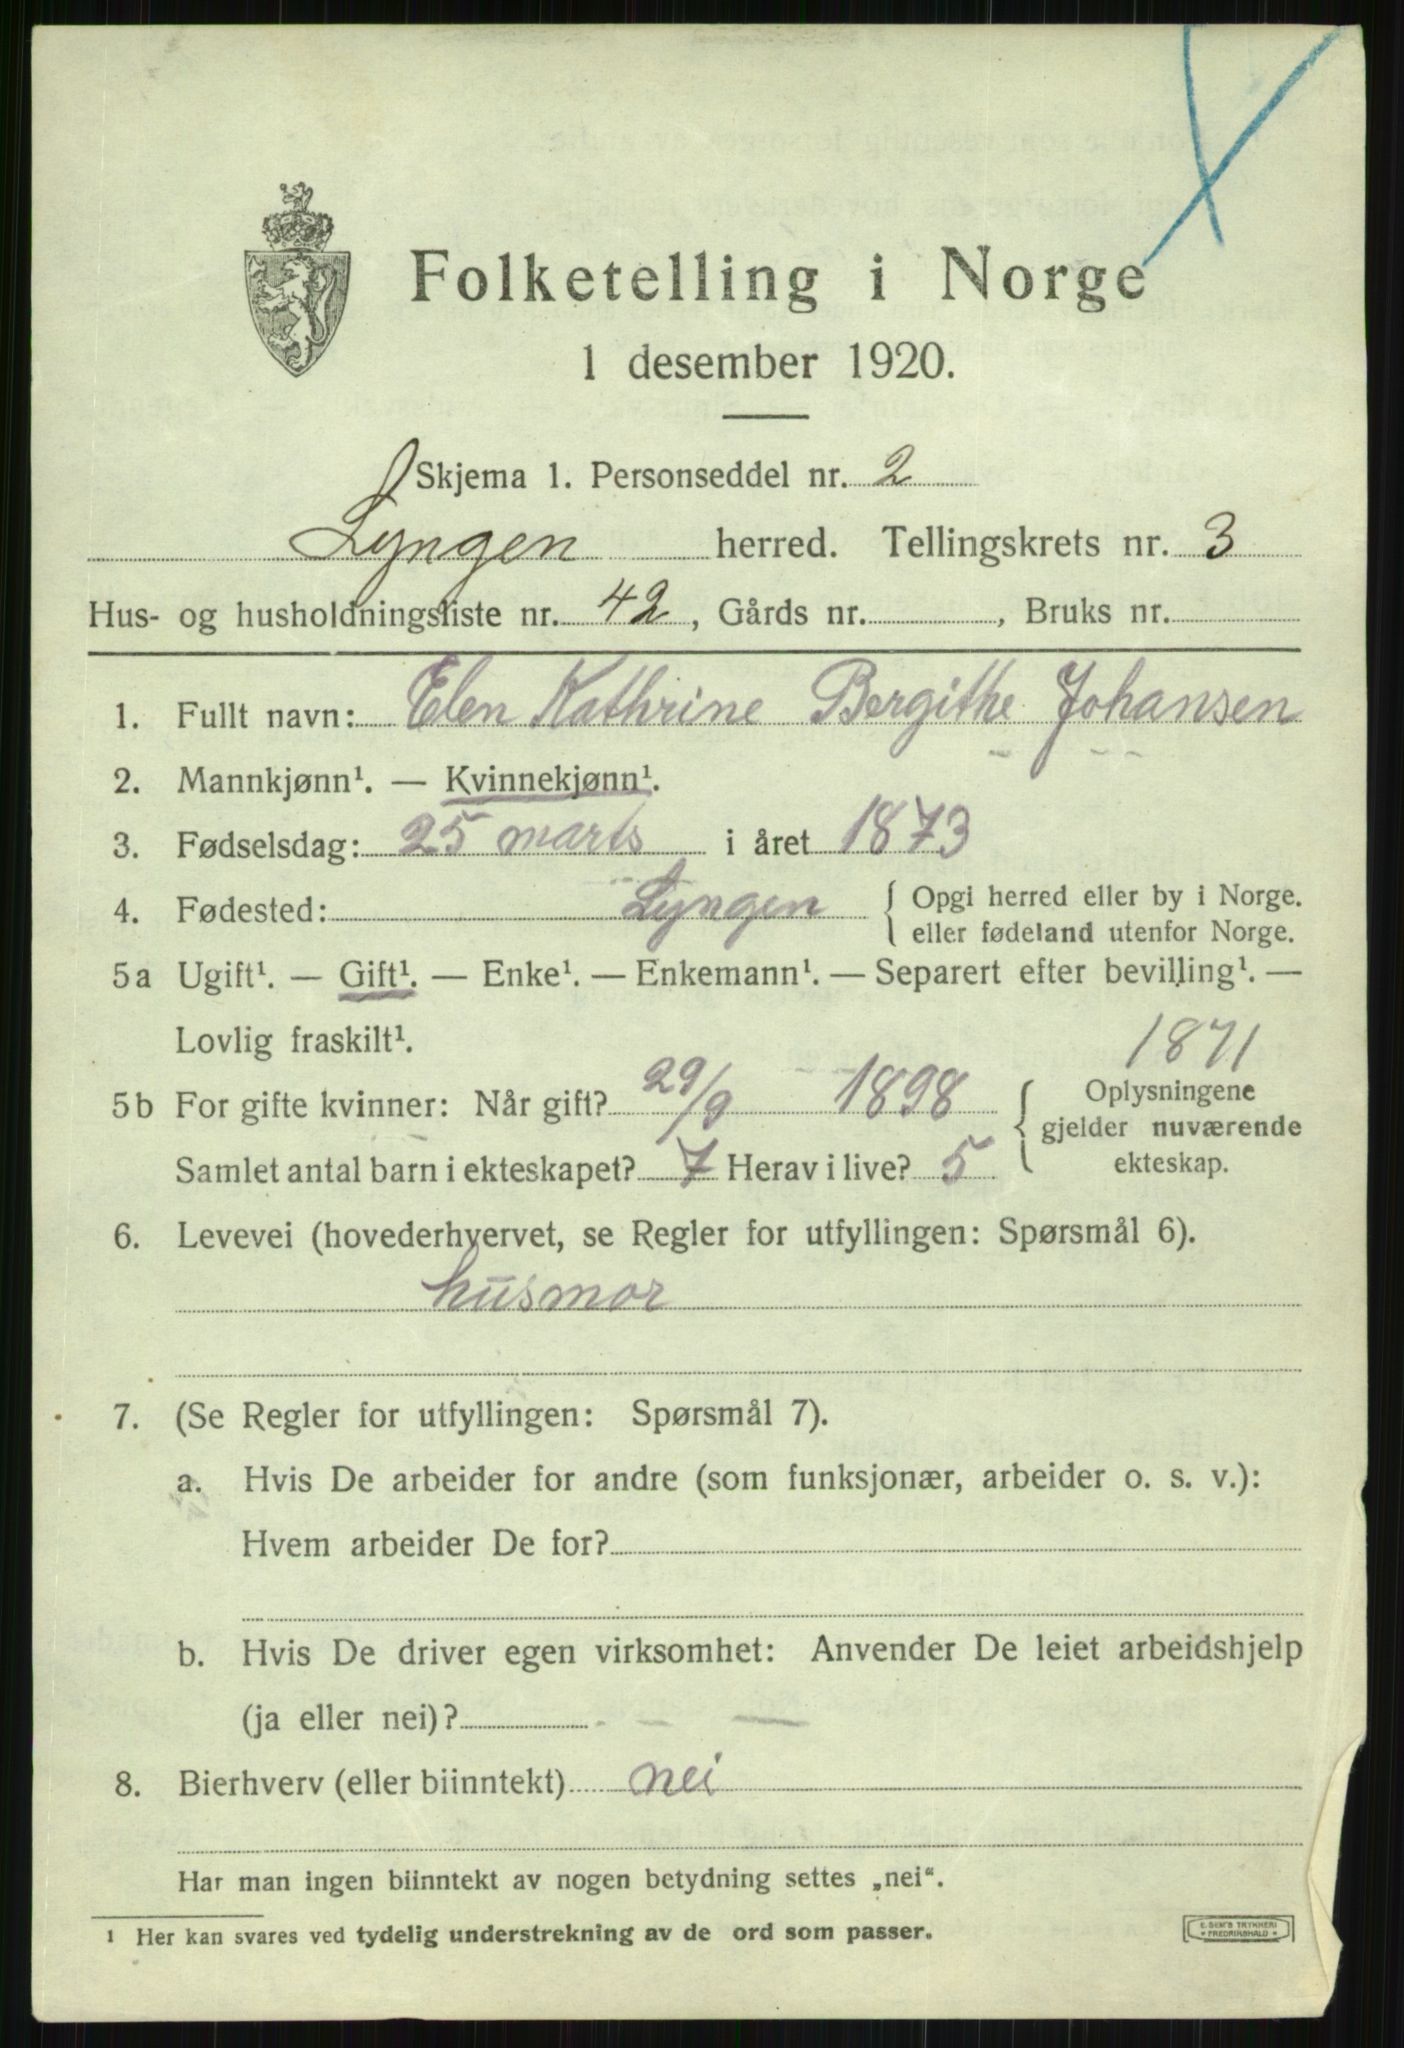 Folketelling i Norge
1 desember 1920.
Skjema 1. Personseddel nr. 2
Lyngen herred. Tellingskrets nr. 3
Hus- og husholdningsliste nr. 42, Gårds nr. , Bruks nr.
1. Fullt navn: Elen Kathrine Bergithe Johansen
2. Mannkjønn¹. — Kvinnekjønn¹.
3. Fødselsdag: 25 marts i året 1873
4. Fødested: Lyngen { Opgi herred eller by i Norge.
eller fødeland utenfor Norge.
5a Ugift¹. — Gift¹. — Enke¹. — Enkemann¹. — Separert efter bevilling¹. —
Lovlig fraskilt¹.
1871
5b For gifte kvinner: Når gift? 29/9 1898 { Oplysningene
gjelder nuværende
Samlet antal barn i ekteskapet? 7 Herav i live? 5 ekteskap.
6. Levevei (hovederhvervet, se Regler for utfyllingen: Spørsmål 6).
husmor
7. (Se Regler for utfyllingen: Spørsmål 7).
a. Hvis De arbeider for andre (som funksjonær, arbeider o. s. v.):
Hvem arbeider De for?
b. Hvis De driver egen virksomhet: Anvender De leiet arbeidshjelp
(ja eller nei)? — —
8. Bierhverv (eller biinntekt) nei
Har man ingen biinntekt av nogen betydning settes „nei“.
¹ Her kan svares ved tydelig understrekning av de ord som passer.
E. SEM'S TRYKKERI
FREDRIKSHALD